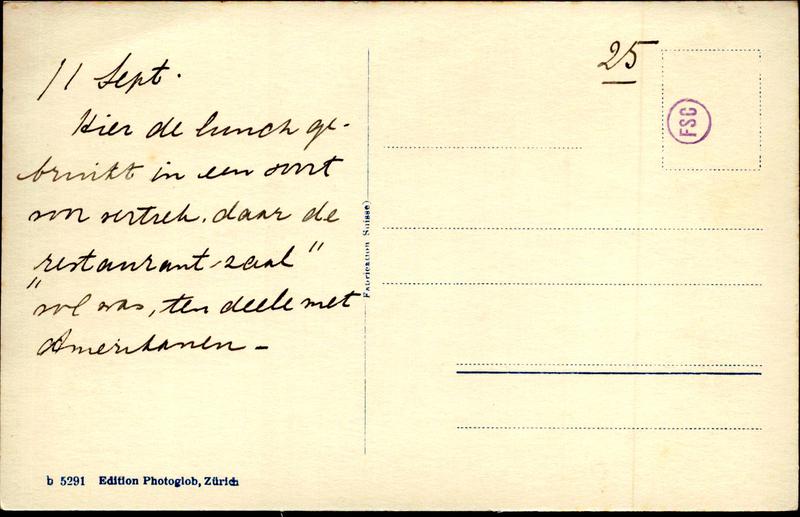 11 Sept.
Hier de lunch ge-
bruikt in een soort
voorvertrek, daar de
restaurant-zaal "
"vol was, ten deele met
Amerikanen -
25
FSC
Fabrication Suisse)
b 5291 Edition Photoglob, Zürich